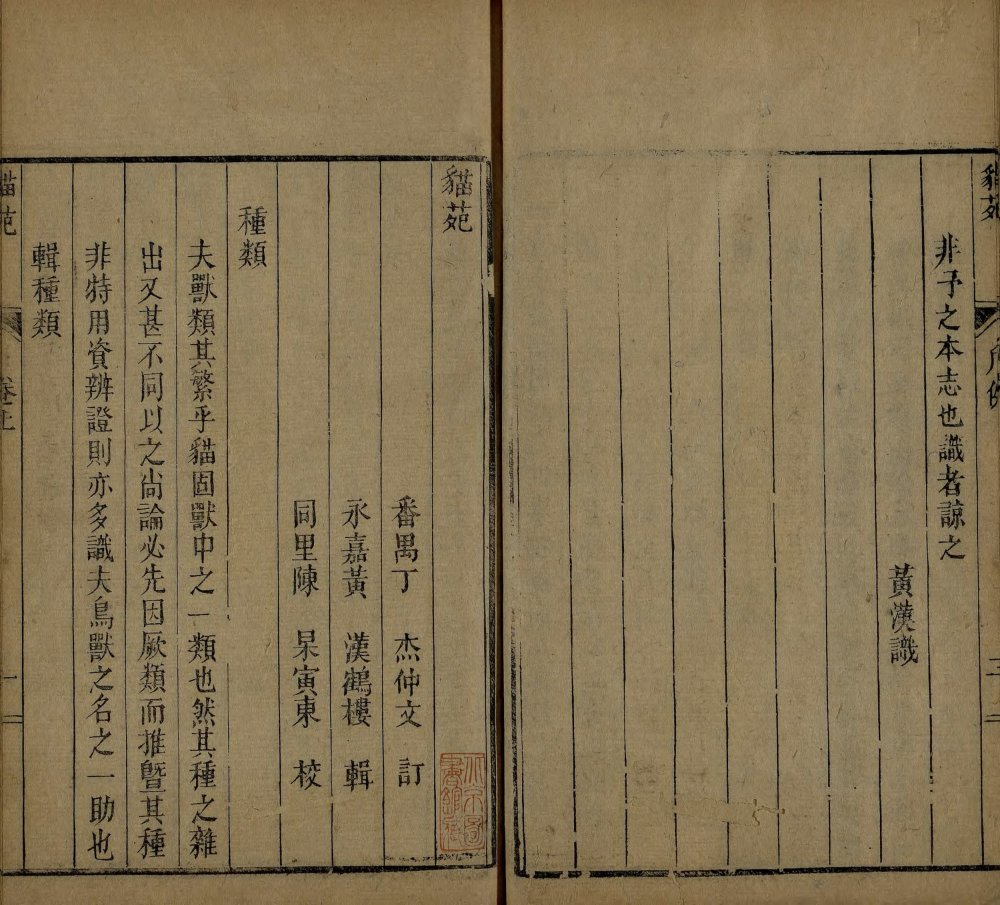 貓苑
凡例
三
非予之本志也識者諒之
黃漢識
貓苑
番禺丁　杰仲文　訂
永嘉黃　漢鶴樓　輯
同里陳　杲寅東　校
種類
夫獸類其繁乎貓固獸中之一類也然其種之雜
出又甚不同以之尚論必先因厥類而推曁其種
非特用資辨證則亦多識夫鳥獸之名之一助也
輯種類
貓苑
卷上
一